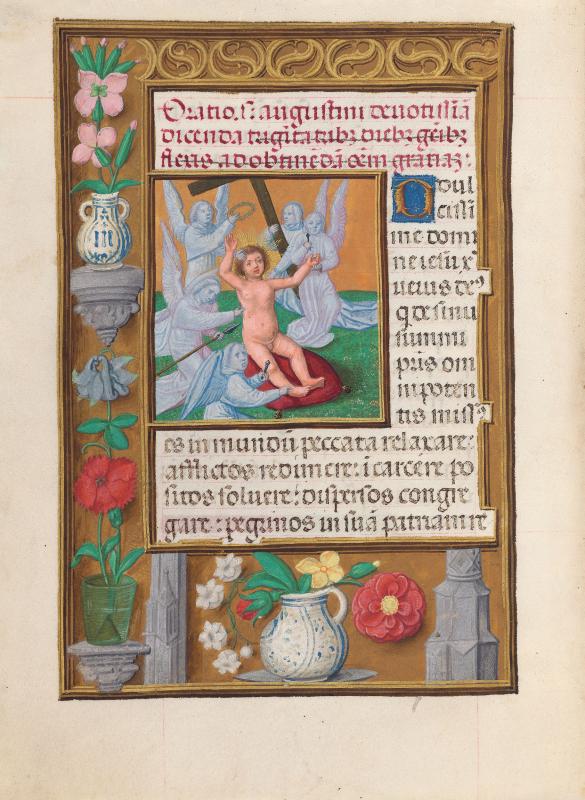 Oratio. s̃. augustini deuotissiã
dicenda trigīta tribꝫ diebꝫ geībꝫ
flexis ad obtinēdā oēm gratiaꝫ:
Dul
cissi
me domi
ne iesu xp̃
uerus deꝰ
q̃ de sinu
summi
pr̃is om
nipoten
tis missꝰ
es in mundũ peccata relaxare:
afflictos redimere: ĩ carcere po
sitos soluere: dispersos congre
gare: pegrinos in suā patriam re